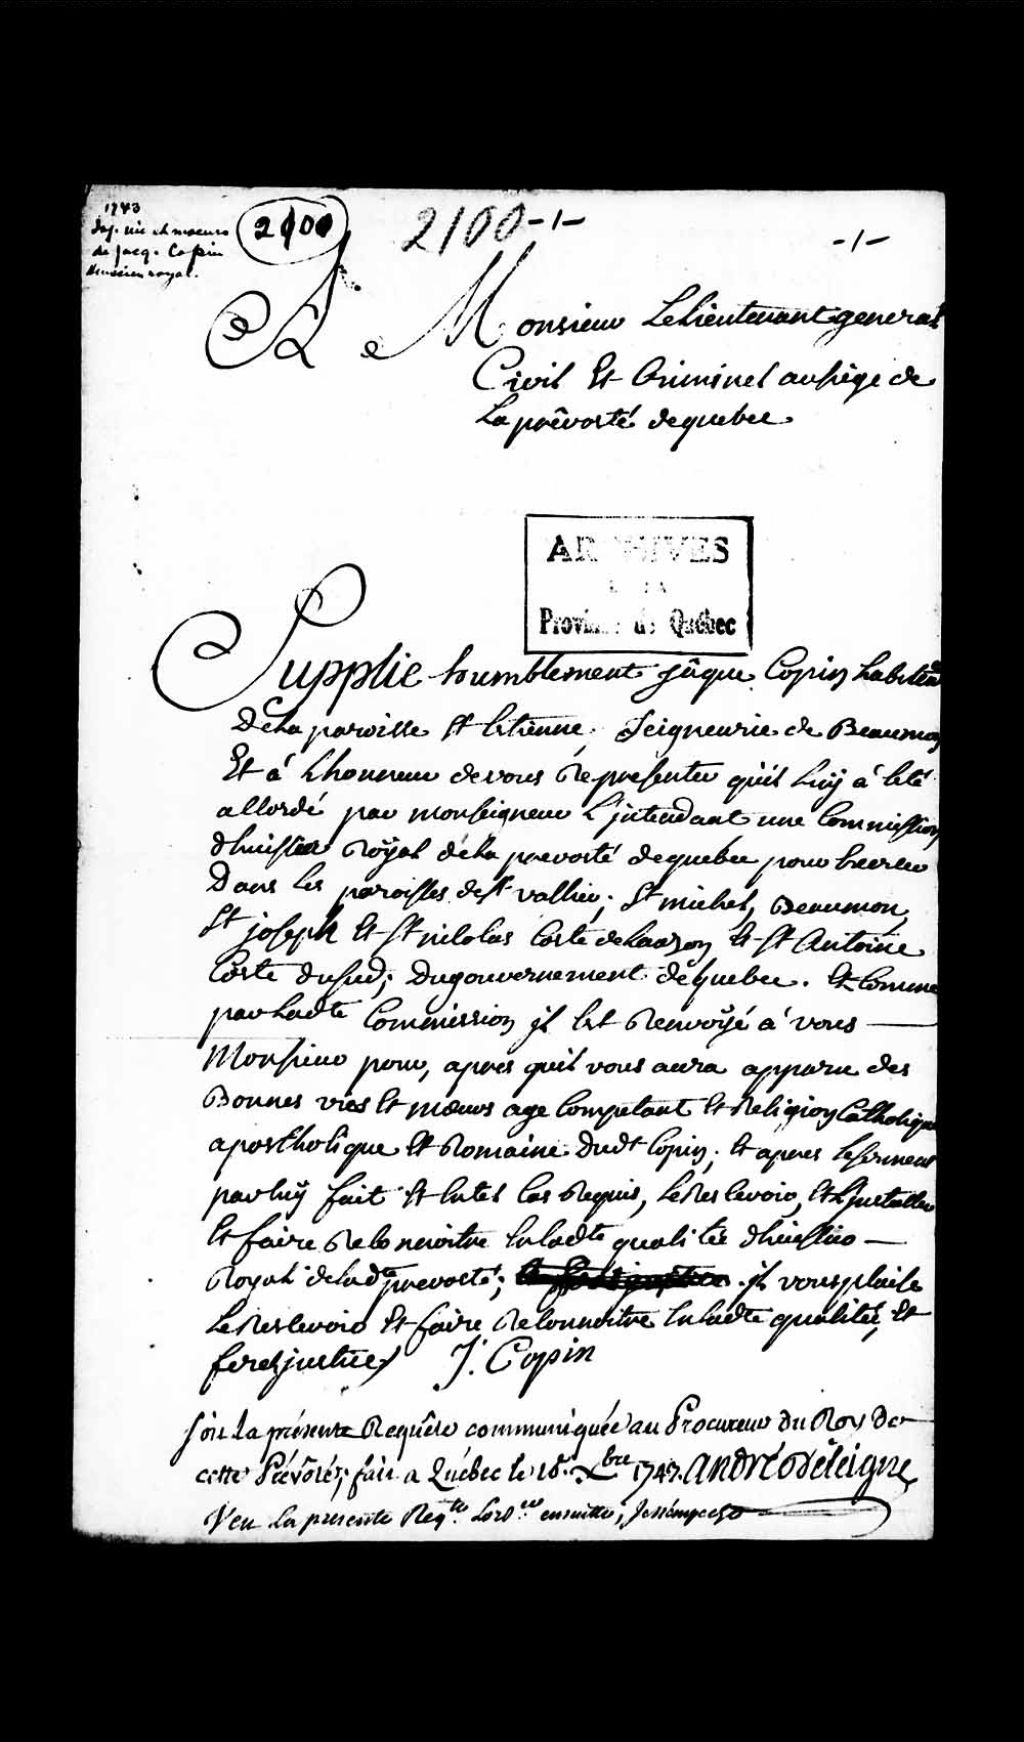 1743
Inf. vie et moeurs
de Jacq. Copin
Huissier royal.
2100
2100 -1-
-1-
A Monsieur Le Lieutenant general
Civil Et Criminel au siège de
La prêvosté de quebec
ARCHIVES
DE LA
Province de Québec
Supplie humblement Jâque Copin habitant
De La paroisse St Etienne, Seigneurie de Beaumon
Et á Lhonneur de vous Representer quil Luÿ á Eté
accordé par monseigneur L'jntendant une Commission
dhuissier Roÿal dela prevosté de quebec pour Exercer
Dans Les paroisses de St vallier; St michel, Beaumon,
St joseph Et St nicolas Coste de Lauzon Et St Antoine
Coste du sud; du gouvernement de quebec. Et Comme
par Ladte Commission jl Est Renvoÿé á vous
Monsieur pour, apres quil vous aura apparu des
Bonnes vies Et mœurs age Competant Et Religion Catholique
apostholique Et Romaine Dudt Copin; Et apres Le serment
par luÿ fait Et En tel cas Requis, Le Recevoir, Et L'jnstaller
Et faire Reconnoitre En Ladte qualitée dhuissier
Royal de Ladte prevosté; jl vous plaise
Le Recevoir Et faire Reconnoitre En Ladte qualité, Et
ferez justice J. Copin
Soit La présente Requête communiquée au Procureur Du Roy De
cette Prévôté; fait a Québec le 18e Xbre 1743. André Deleigne
Veu La presente Reqte Lordce ensuitte;